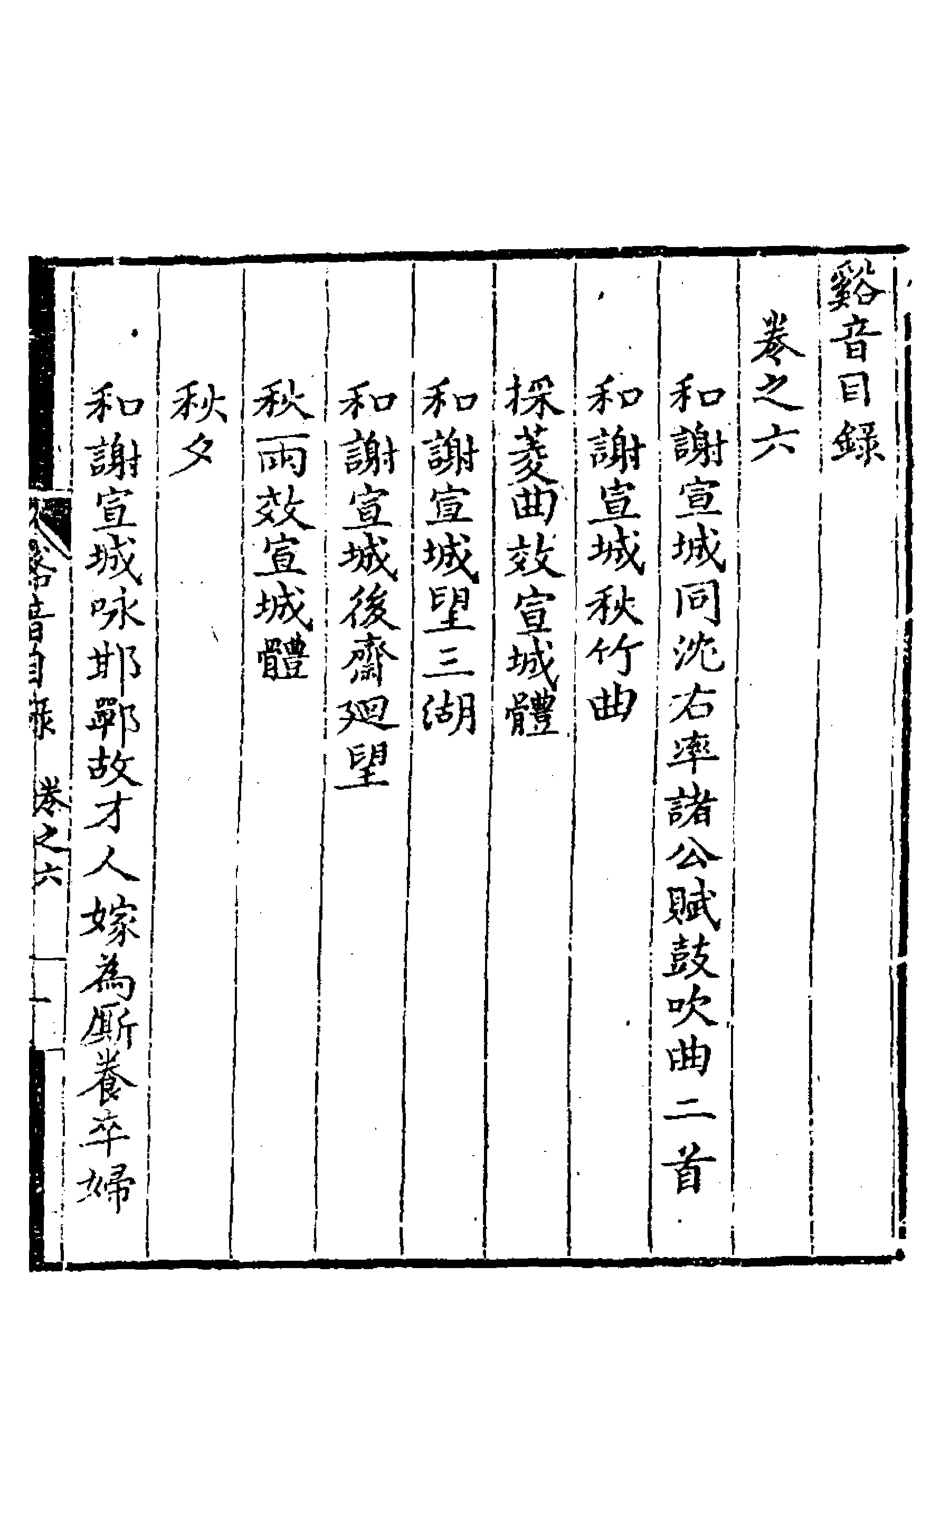 谿音目錄
卷之六
和謝宣城同沈右率諸公賦鼓吹曲二首
和謝宣城秋竹曲
採菱曲效宣城體
和謝宣城望三湖
和謝宣城後齋廻望
秋雨效宣城體
秋夕
和謝宣城咏邯鄲故才人嫁為厮養卒婦
谿音目錄 卷之六 一